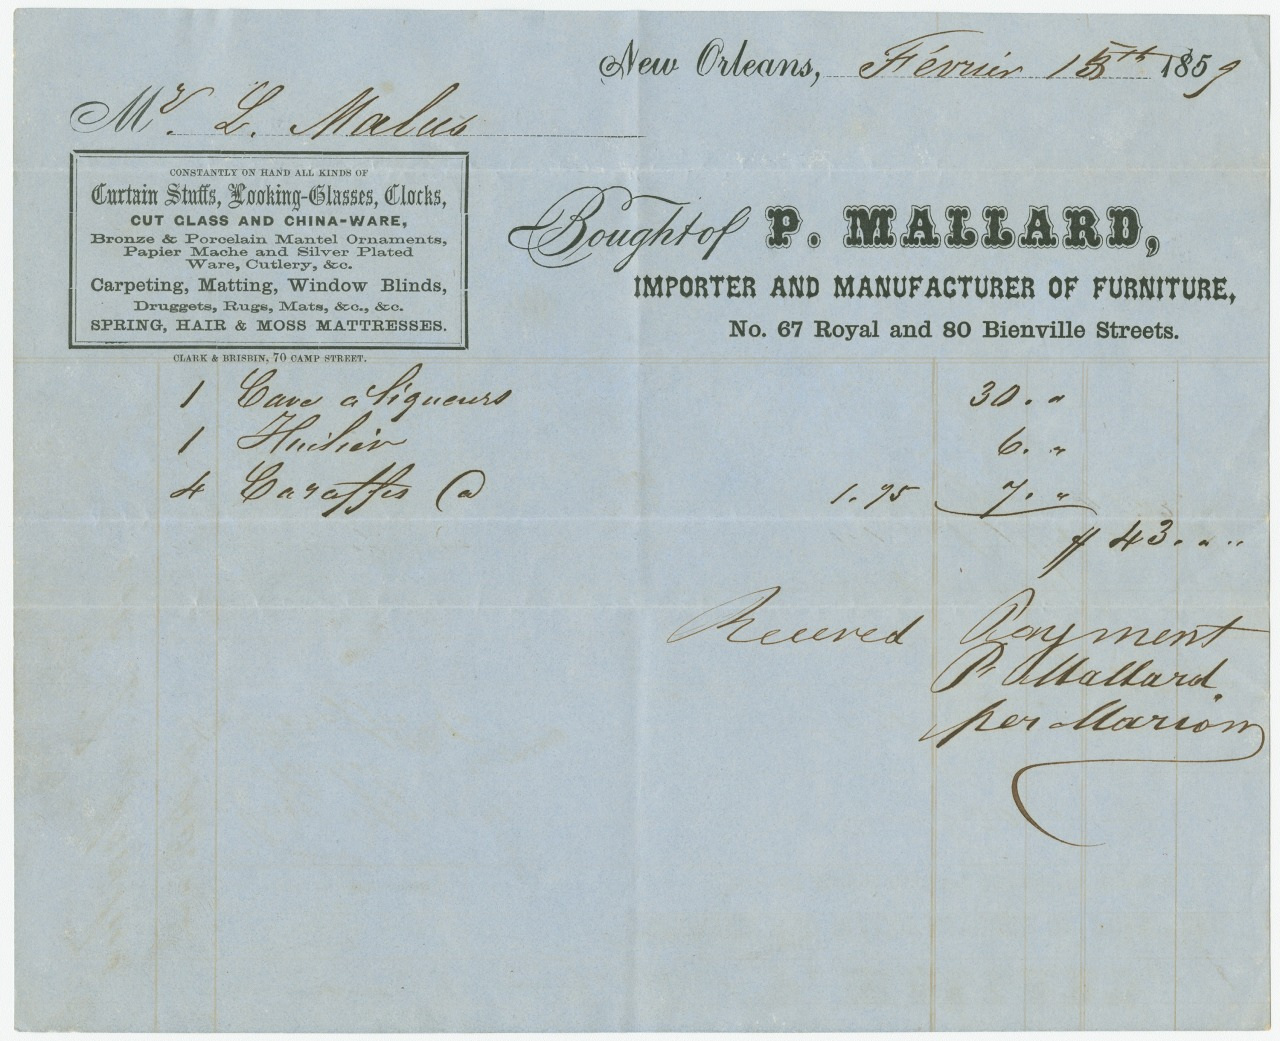 New Orleans, Février 15th 1859
Mr. L. Malus
CONSTANTLY ON HAND ALL KINDS OF
Curtain Stuffs, Looking-Glasses, Clocks,
CUT GLASS AND CHINA-WARE,
Bronze & Porcelain Mantel Ornaments,
Papier Mache and Silver Plated
Ware, Cutlery, &c.
Carpeting, Matting, Window Blinds,
Druggets, Rugs, Mats, &c., &c.
SPRING, HAIR & MOSS MATTRESSES.
CLARK & BRISBIN, 70 CAMP STREET.
Bought of P. MALLARD,
IMPORTER AND MANUFACTURER OF FURNITURE,
No. 67 Royal and 80 Bienville Streets.
1 Cave à liqueurs 30. "
1 Huilier 6. "
4 Caraffes @ 1.75 7. "
$ 43. " "
Received Payment
P. Mallard
per Marion